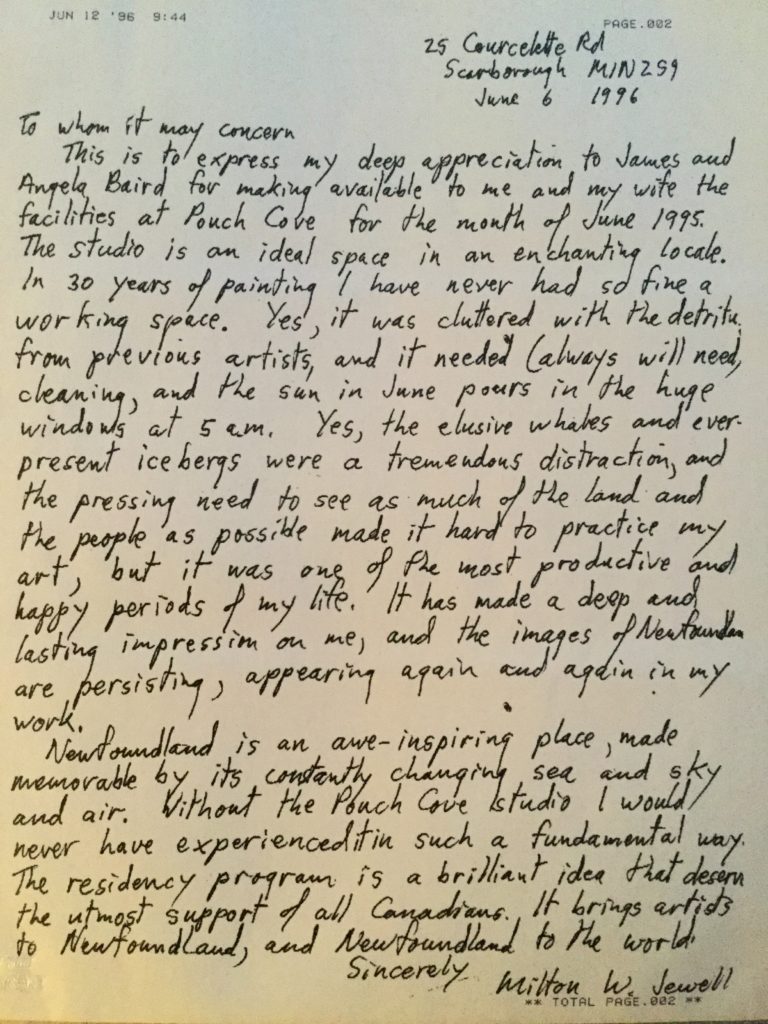 JUN 12 '96 9:44 PAGE.002
25 Courcelette Rd
Scarborough M1N2S9
June 6 1996
To whom it may concern
This is to express my deep appreciation to James and
Angela Baird for making available to me and my wife the
facilities at Pouch Cove for the month of June 1995.
The studio is an ideal space in an enchanting locale.
In 30 years of painting I have never had so fine a
working space. Yes, it was cluttered with the detritu
from previous artists, and it needed (always will need,
cleaning, and the sun in June pours in the huge
windows at 5 a.m. Yes, the elusive whales and ever-
present icebergs were a tremendous distraction, and
the pressing need to see as much of the land and
the people as possible made it hard to practice my
art, but it was one of the most productive and
happy periods of my life. It has made a deep and
lasting impression on me, and the images of Newfoundlan
are persisting, appearing again and again in my
work.
Newfoundland is an awe-inspiring place, made
memorable by its constantly changing sea and sky
and air. Without the Pouch Cove studio I would
never have experienced it in such a fundamental way.
The residency program is a brilliant idea that deserv
the utmost support of all Canadians. It brings artists
to Newfoundland, and Newfoundland to the world.
Sincerely
Milton W. Jewell
** TOTAL PAGE.002 **